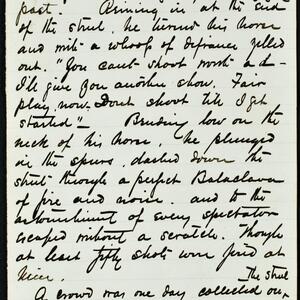 past. Reining in, at the end
of the street, he turned his horse
and with a whoop of defiance yelled
out. "You can't shoot worth a d—
I'll give you another show. Fair
play now. Dont shoot till I get
started" — Bending low on the
neck of his horse, he plunged
in the spurs, dashed down the
street through a perfect Balaclava
of fire and noise. and to the
astonishment of every spectator
escaped without a scratch. Though
at least fifty shots were fired at
him.
The street
A crowd was one day collected on